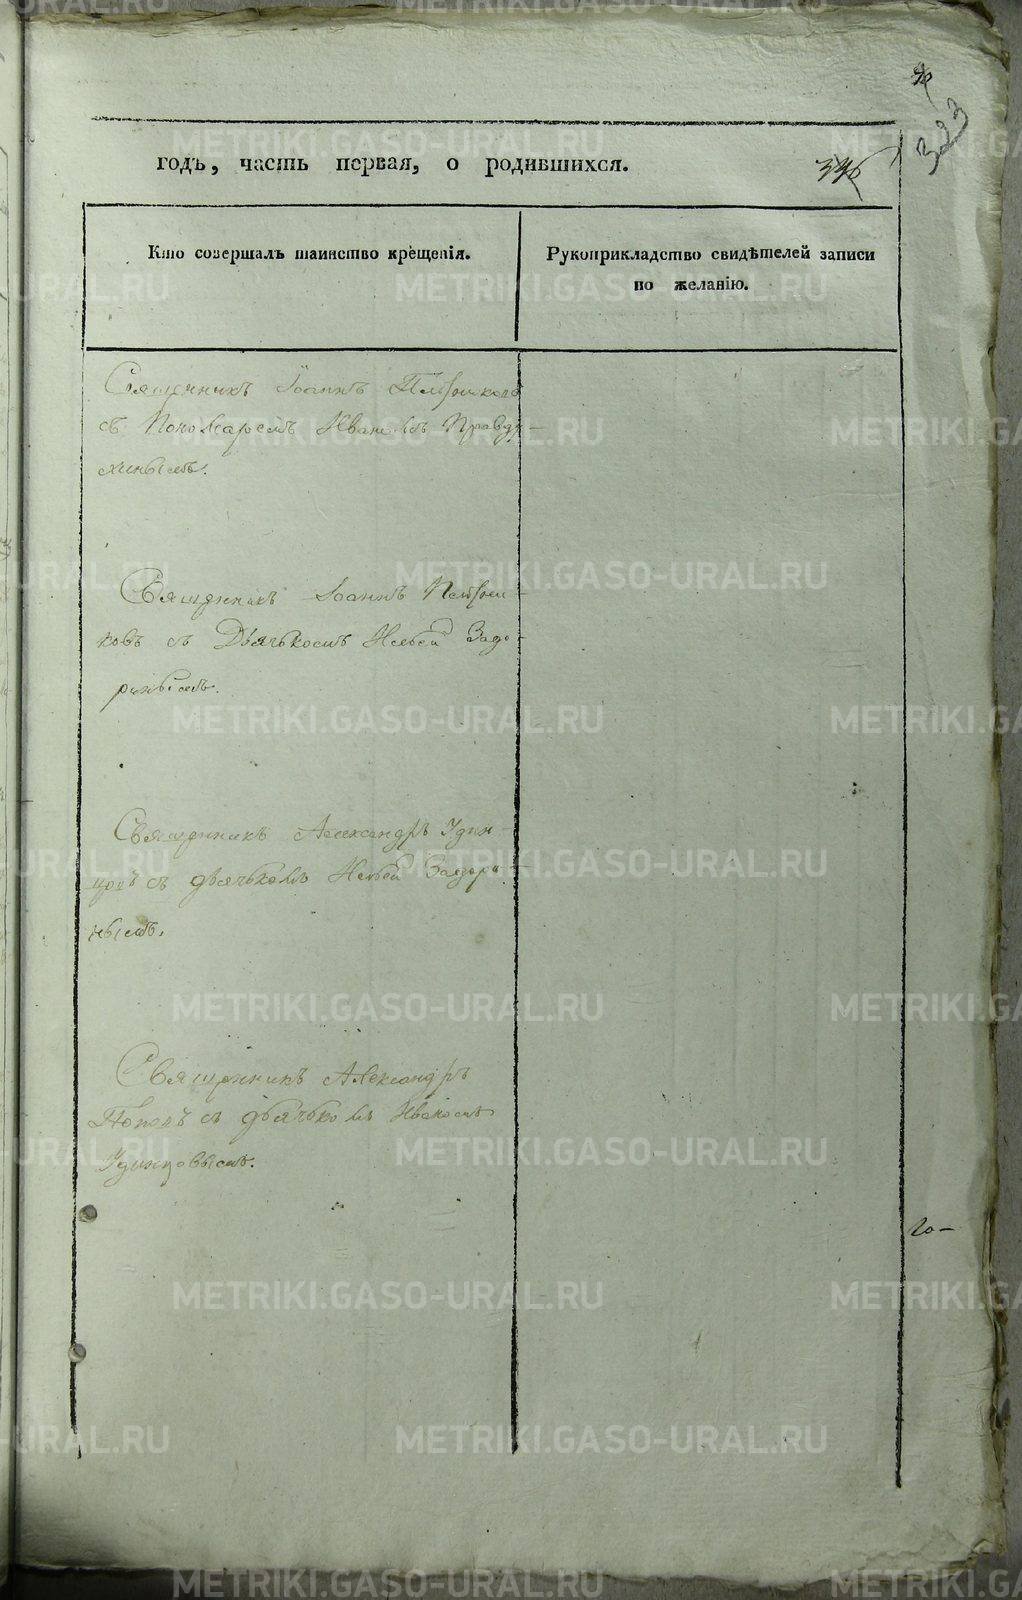 323
336
годъ, часть первая, о родившихся.
Кто совершалъ таинство крещенія.
Рукоприкладство свидѣтелей записи
по желанію.
Священникъ Іоаннъ
съ Пономаремъ Иваномъ Правду-
хинымъ.
Священникъ Іоаннъ
ковъ съ Дьячькомъ Задо-
ринымъ.
Священникъ Александръ Удин-
цовъ съ дьячькомъ Задори-
нымъ.
Священникъ Александръ
Поповъ съ дьячькомъ Иваномъ
Удинцовымъ.
20-
METRIKI.GASO-URAL.RU